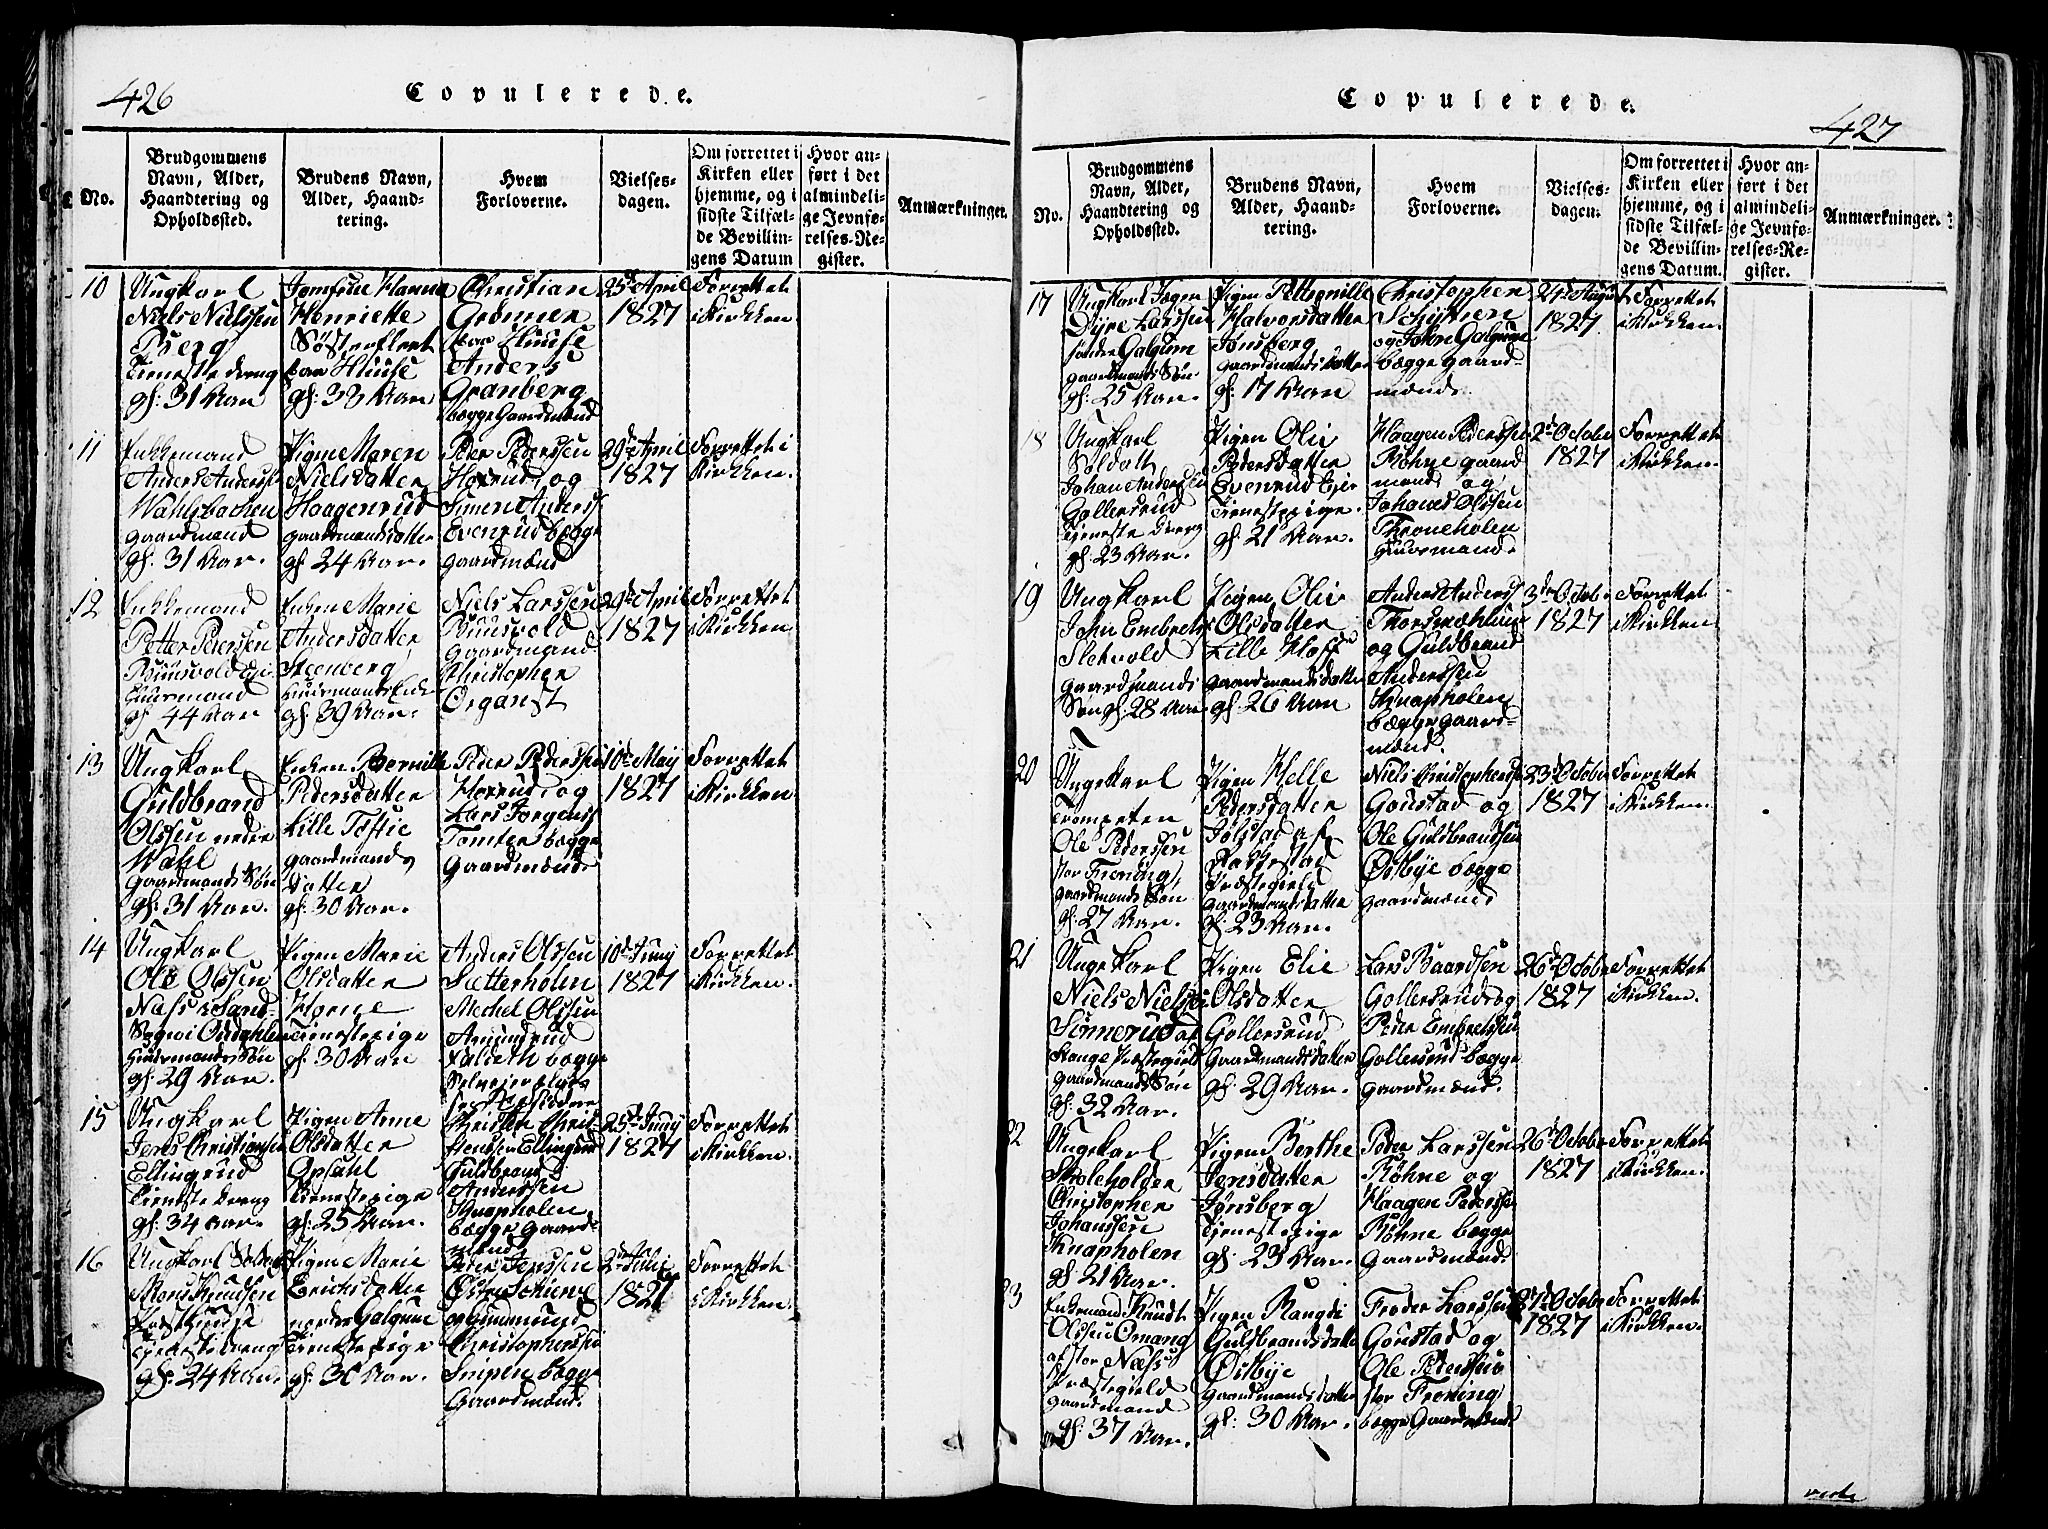 426
Copulerede.
No.
Brudgommens
Navn, Alder,
Haandtering og
Opholdssted.
Brudens Navn,
Alder, Haand-
tering.
Hvem
Forloverne.
Vielses-
dagen.
Om forrettet i
Kirken eller
hjemme, og i
sidste Tilfæl-
de Bevillin-
gens Datum
Hvor an-
ført i det
almindeli-
ge Jevnfø-
relses-Re-
gister.
Anmærkninger.
10
Ungkarl
Niels Nielssen
Berg
Tieneste dreng
gl: 31 Aar
Jomfrue Hanna
Henriette
Søsterfleet
paa Huuse
gl: 38 Aar
Christian
Grønnen
paa Huuse
Anders
Granberg
bægge Gaardmænd
25de April
1827
Forrettet
i Kirkken
11
Enkkemand
Anders Anderss
Wahlsbachen
gaardmand
gl. 31 Aar.
Pigen Maren
Nielsdatter
Haagenrud
gaardmandsdatter
gl 24 Aar.
Peder Pederssen
Horrud og
Simen Anderss
Evenrud bægge
gaardmænd
29de April
1827
Forrettet i
Kirkken
12
Enkkemand
Petter Pederssen
Buusvold Ej:
Huusmand
gl 44 Aar
Enken Marie
Andersdatter
Steenberg
Huusmands Enke
gl. 39 Aar.
Niels Larssen
Buusvold
Gaardmand
Christopher
Organst
29de April
1827
Forrettet
i Kirkken
13
Ungkarl
Guldbrand
Olssen nedre
Wahl
Gaardmands Søn
gl. 31 Aar.
Enken Bernille
Pedersdatter
Lille Toftie
gaardmands
datter
gl. 30 Aar.
Peder Pederssen
Horrud og
Lars Jørgenss
Tomter bægge
Gaardmænd
10de Maij
1827
Forrettet
i Kirkken
14
Ungkarl
Ole Olssen
Næss i Sand
Sogn i Odahlen
Huusmands Søn
gl. 29 Aar.
Pigen Marie
Olsdatter
Horne
Tienestepige
gl. 30 Aar
Anders Olssen
Sætterholm
Mechel Olssen
Amundrud
Taldeth bægge
10de Junij
1827
Forrettet
i Kirkken.
15
Ungkarl
Jens Christianssen
Ellingrud
Tieneste dreng
gl. 34 Aar.
Pigen Anne
Olsdatter
Opsahl
Tienestepige
gl. 25 Aar.
Christen Chris-
tenssen Ellingrud
Guldbrand
Anderssen
Knapholen
bægge Gaard-
mænd
25de Junij
1827
Forrettet
i Kirkken.
16
Ungkarl Soldat
Mons Knudsen
Præsthuuse
Tieneste dreng
gl. 24 Aar.
Pigen Marie
Ericksdatter
nordre Galgum
Tienestepige
gl. 30 Aar.
Peder Jenssen
Østre Schiønne
og Gudmund
Christopherssen
Snipen bægge
Gaardmænd.
2den Julij
1827
Forrettet
i Kirkken.
Copulerede.
427
No.
Brudgommens
Navn, Alder,
Haandtering og
Opholdssted.
Brudens Navn,
Alder, Haand-
tering.
Hvem
Forloverne.
Vielses-
dagen.
Om forrettet i
Kirken eller
hjemme, og i
sidste Tilfæl-
de Bevillin-
gens Datum.
Hvor an-
ført i det
almindeli-
ge Jevnfø-
relses-Re-
gister.
Anmærkninger.
17
Ungkarl Jægen
Dyre Larssen
søndre Galgum
gaardmands Søn
gl: 25 Aar.
Pigen Pettronille
Halvorsdatter
Jønsberg
gaardmands datter
gl. 17 Aar
Christopher
Schiønen
og John Galgum
bægge gaard-
mænd.
24de August
1827
Forrettet
i Kirkken.
18
Ungkarl
Soldatt
Johan Anderssen
Gollersrud
Tieneste dreng
gl. 23 Aar.
Pigen Oliv
Pedersdatter
Evenrud Eje
Tienestepige.
gl. 21 Aar.
Haagen Pederssen
Røhne gaard
mand og
Johanes Olssen
Throneholen
Huusmand.
2de October
1827
Forrettet
i Kirkken.
19
Ungkarl
John Embrets
Sletvold
gaardmands
Søn gl. 28 Aar
Pigen Oliv
Olsdatter
Lille Hoff
gaardmandsdatter
gl. 26 Aar
Anders Anderss
Thorsmæhuus
og Guldbrand
Anderssen
Knapholen
bægge gaard-
mænd.
3de October
1827
Forrettet
i Kirkken.
20
Ungekarl
Trompeten
Ole Pederssen
stor Froning
gaardmands Søn
gl: 27 Aar.
Pigen Helle
Pedersdatter
Jølstad af
Rakkestad
Præstegield
gaardmandsdatter
gl. 23 Aar.
Niels Christophersen
Goustad og
Ole Guldbrandsen
Østbye bægge
gaardmænd
23de October
1827
Forrettet
i Kirkken.
21
Ungekarl
Niels Nielsen
Sønnerud af
Stange Præstegield
Gaardmands Søn
gl: 32 Aar.
Pigen Elie
Olsdatter
Gollersrud
Gaardmandsdatter
gl. 29 Aar.
Lars Baardsen
Gollersrud og
Peder Embretssen
Gollersrud bægge
gaardmænd.
26de October
1827
Forrettet
i Kirkken.
22
Ungekarl
Skoleholder
Christopher
Johanssen
Knapholen
gl. 21 Aar.
Pigen Berthe
Jensdatter
Jønsberg
Tjenestepige
gl. 23 Aar.
Peder Larssen
Røhne og
Haagen Pederssen
Røhne bægge
Gaardmænd.
26de October
1827
Forrettet
i Kirkken.
23
Enkemand Knudt
Olssen Omang
af stor Næss
Præstegield
gaardmand
gl: 37 Aar.
Pigen Rangdi
Guldbrandsdatter
Østbye
Gaardmandsdatter
gl: 30 Aar.
Froder Larssen
Goustad og
Ole Pederssen
stor Froning
bægge Gaardmænd
27de October
1827
Forrettet
i Kirkken.
verte